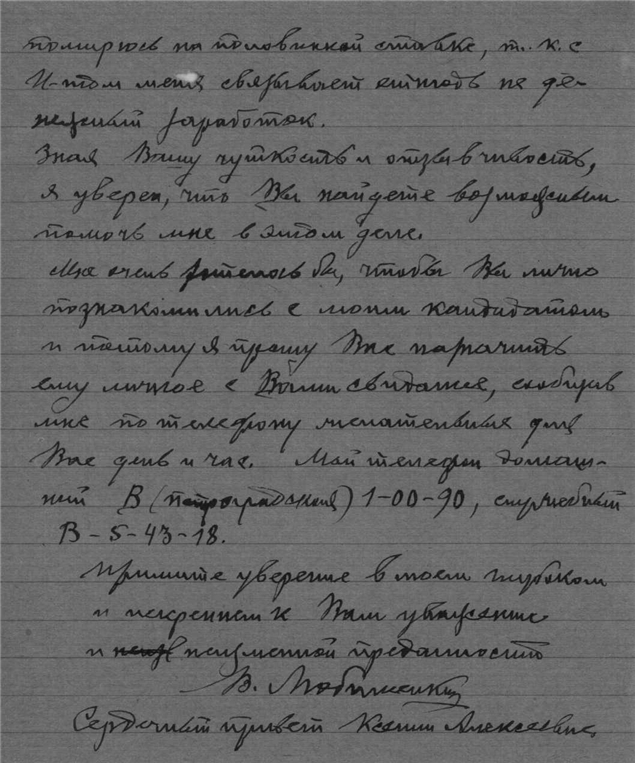 помирюсь на половинной ставке, т. к. с
И-том меня связывает отнюдь не де-
нежный заработок.
Зная Вашу чуткость и отзывчивость,
я уверен, что Вы найдете возможным
помочь мне в этом деле.
Мне очень хотелось бы, чтобы Вы лично
познакомились с моим кандидатом
и потому я прошу Вас назначить
ему личное с Вами свидание, сообщив
мне по телефону желательные для
Вас день и час. Мой телефон домаш-
ний В (петроградская) 1-00-90, служебный
В-5-43-18.
Примите уверение в моем глубоком
и искреннем к Вам уважении
и неизменной преданности
В.
Сердечный привет Ксении Алексеевне.